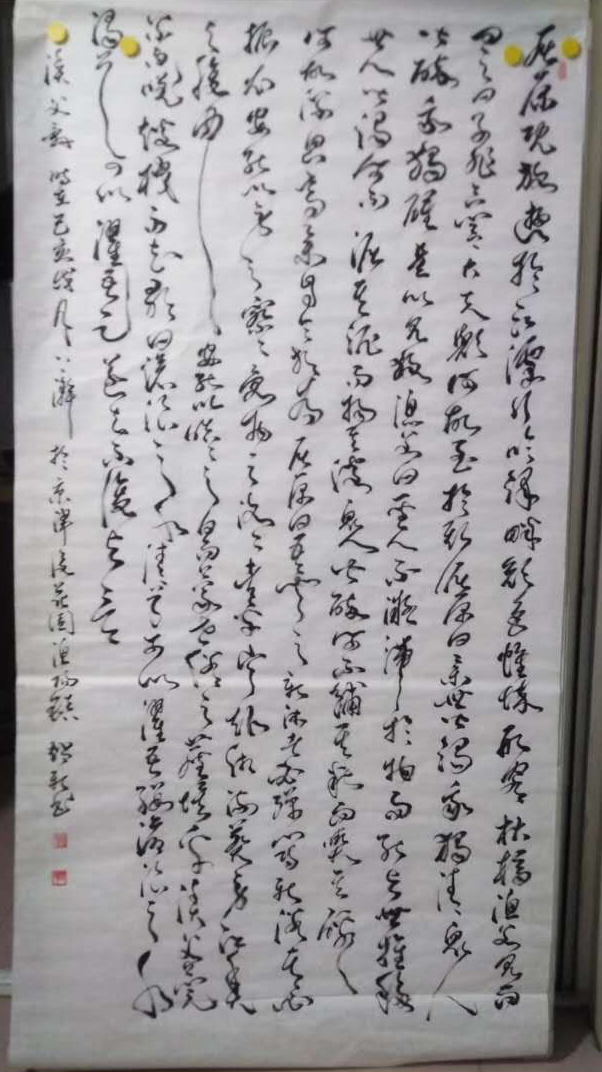 屈原既放遊於江潭行吟澤畔顏色憔悴形容枯槁漁父見而
問之曰子非三閭大夫歟何故至於斯屈原曰舉世皆濁我獨清衆人
皆醉我獨醒是以見放漁父曰聖人不凝滯於物而能與世推移
世人皆濁何不淈其泥而揚其波衆人皆醉何不餔其糟而歠其醨
何故深思高舉自令放爲屈原曰吾聞之新沐者必彈冠新浴者必
振衣安能以身之察察受物之汶汶者乎寧赴湘流葬於江魚
之腹中安能以皓皓之白而蒙世俗之塵埃乎漁父莞
爾而笑鼓枻而去歌曰滄浪之水清兮可以濯吾纓滄浪之水
濁兮可以濯吾足遂去不復與言
漁父辭 時在己亥歲月 於京津 花園漁陽鎮